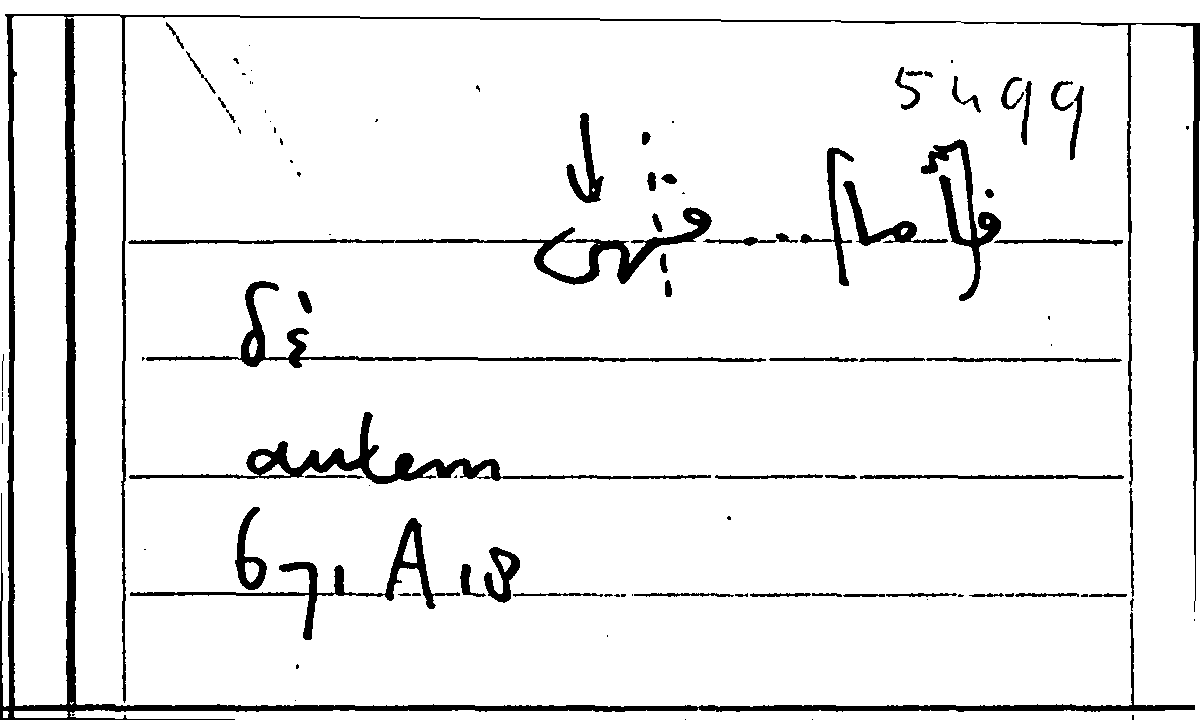 5499
[فأما] ...
δὲ
autem
671 A 18